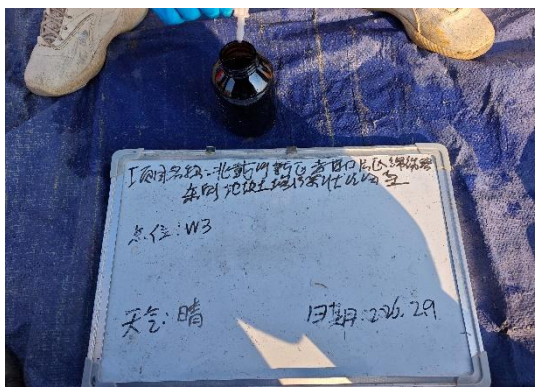 项目名称:北戴河新区
东侧地块土壤污染状况调查
点位:W3
天气:晴
日期:226.2.9